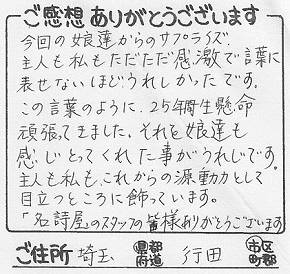 ご感想ありがとうございます
今回の娘達からのサプライズ
主人も私もただただ感激で言葉に
表せないほどうれしかったです。
この言葉のように、25年間一生懸命
頑張ってきました。それを娘達も
感じとってくれた事がうれしいです。
主人も私も、これからの源動力として
目立つところに飾っています。
「名詩屋」のスタッフの皆様ありがとうございます
ご住所 埼玉 都道府県 行田 市区町郡